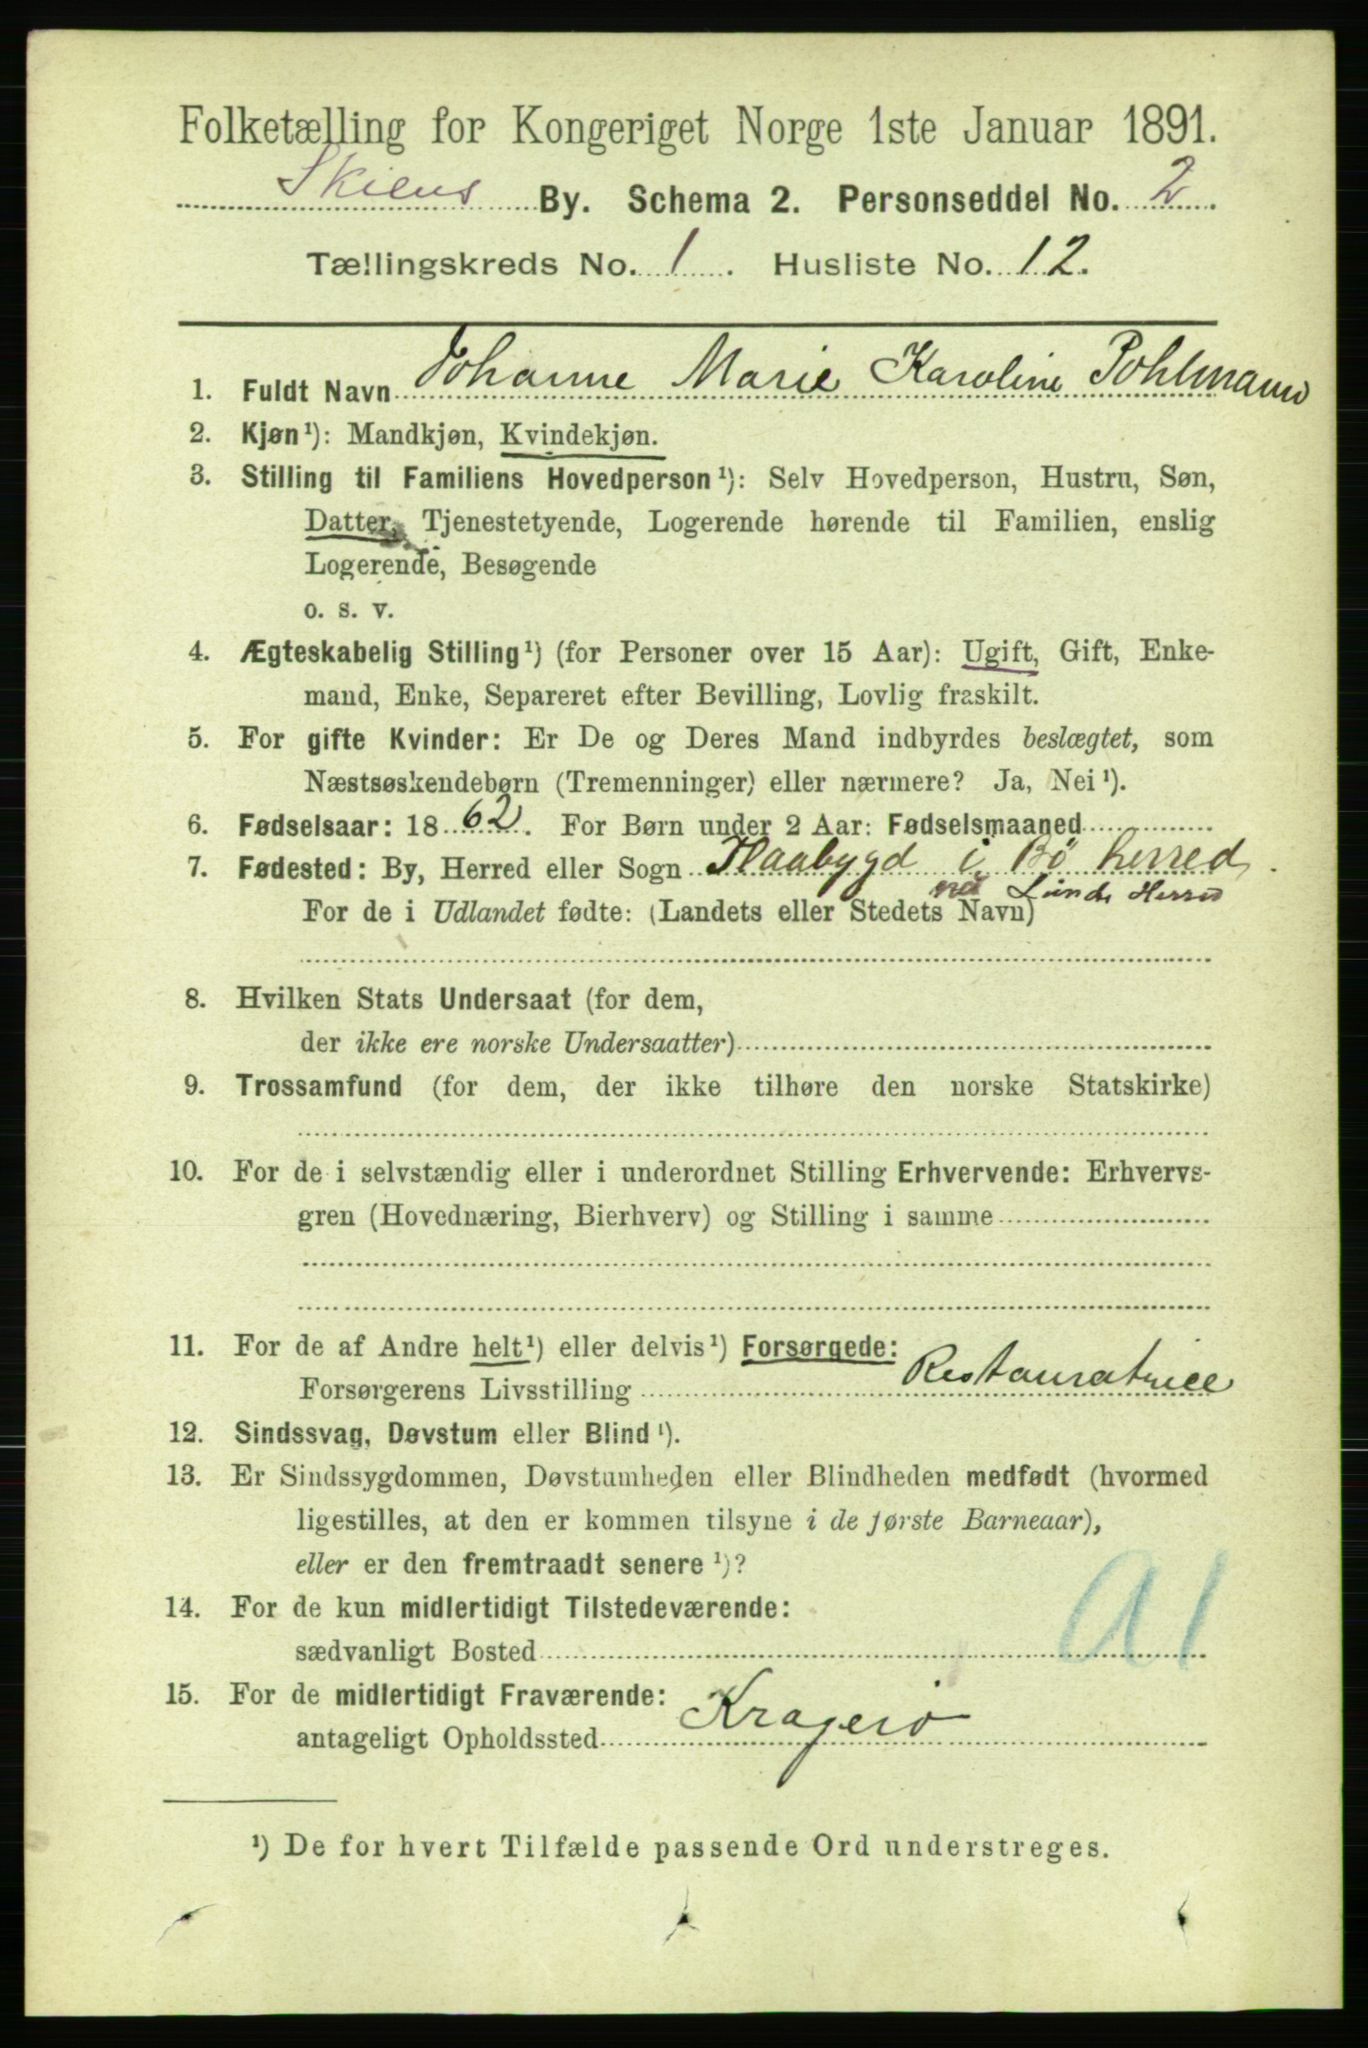 Folketælling for Kongeriget Norge 1ste Januar 1891.
Skiens By. Schema 2. Personseddel No. 2
Tællingskreds No. 1. Husliste No. 12.
1. Fuldt Navn Johanne Marie Karoline Pohlmann
2. Kjøn¹): Mandkjøn, Kvindekjøn.
3. Stilling til Familiens Hovedperson¹): Selv Hovedperson, Hustru, Søn,
Datter, Tjenestetyende, Logerende hørende til Familien, enslig
Logerende, Besøgende
o. s. v.
4. Ægteskabelig Stilling¹) (for Personer over 15 Aar): Ugift, Gift, Enke-
mand, Enke, Separeret efter Bevilling, Lovlig fraskilt.
5. For gifte Kvinder: Er De og Deres Mand indbyrdes beslægtet, som
Næstsøskendebørn (Tremenninger) eller nærmere? Ja, Nei¹).
6. Fødselsaar: 1862. For Børn under 2 Aar: Fødselsmaaned
7. Fødested: By, Herred eller Sogn Flaabygd i Bø herred
nu Lunde Herred
For de i Udlandet fødte: (Landets eller Stedets Navn)
8. Hvilken Stats Undersaat (for dem,
der ikke ere norske Undersaatter)
9. Trossamfund (for dem, der ikke tilhøre den norske Statskirke)
10. For de i selvstændig eller i underordnet Stilling Erhvervende: Erhvervs-
gren (Hovednæring, Bierhverv) og Stilling i samme
11. For de af Andre helt¹) eller delvis¹) Forsørgede:
Forsørgerens Livsstilling Restauratrice
12. Sindssvag, Døvstum eller Blind¹).
13. Er Sindssygdommen, Døvstumheden eller Blindheden medfødt (hvormed
ligestilles, at den er kommen tilsyne i de første Barneaar),
eller er den fremtraadt senere¹)?
14. For de kun midlertidigt Tilstedeværende:
sædvanligt Bosted
A1
15. For de midlertidigt Fraværende:
antageligt Opholdssted Kragerø
¹) De for hvert Tilfælde passende Ord understreges.